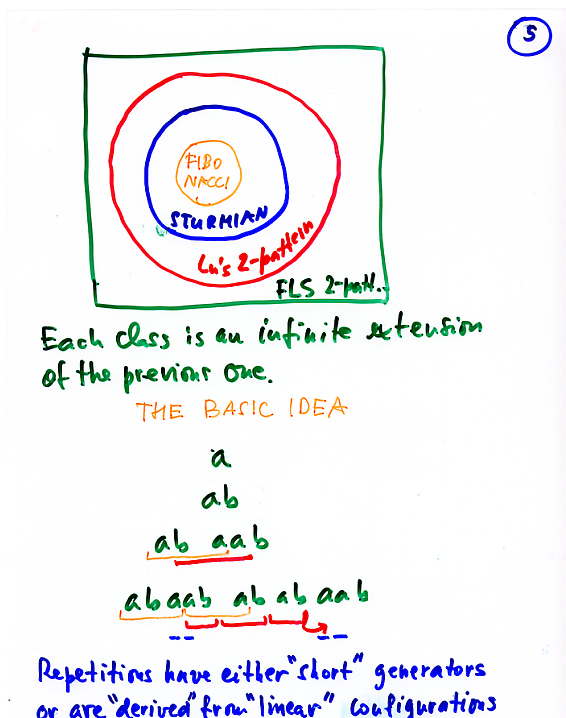 5
FIBO
NACCI
STURMIAN
Ln's 2-pattern
FLS 2-patt.
Each class is an infinite extension
of the previous one.
THE BASIC IDEA
a
ab
ab aab
abaab ab ab aab
Repetitions have either "short" generators
or are "derived" from "linear" configurations